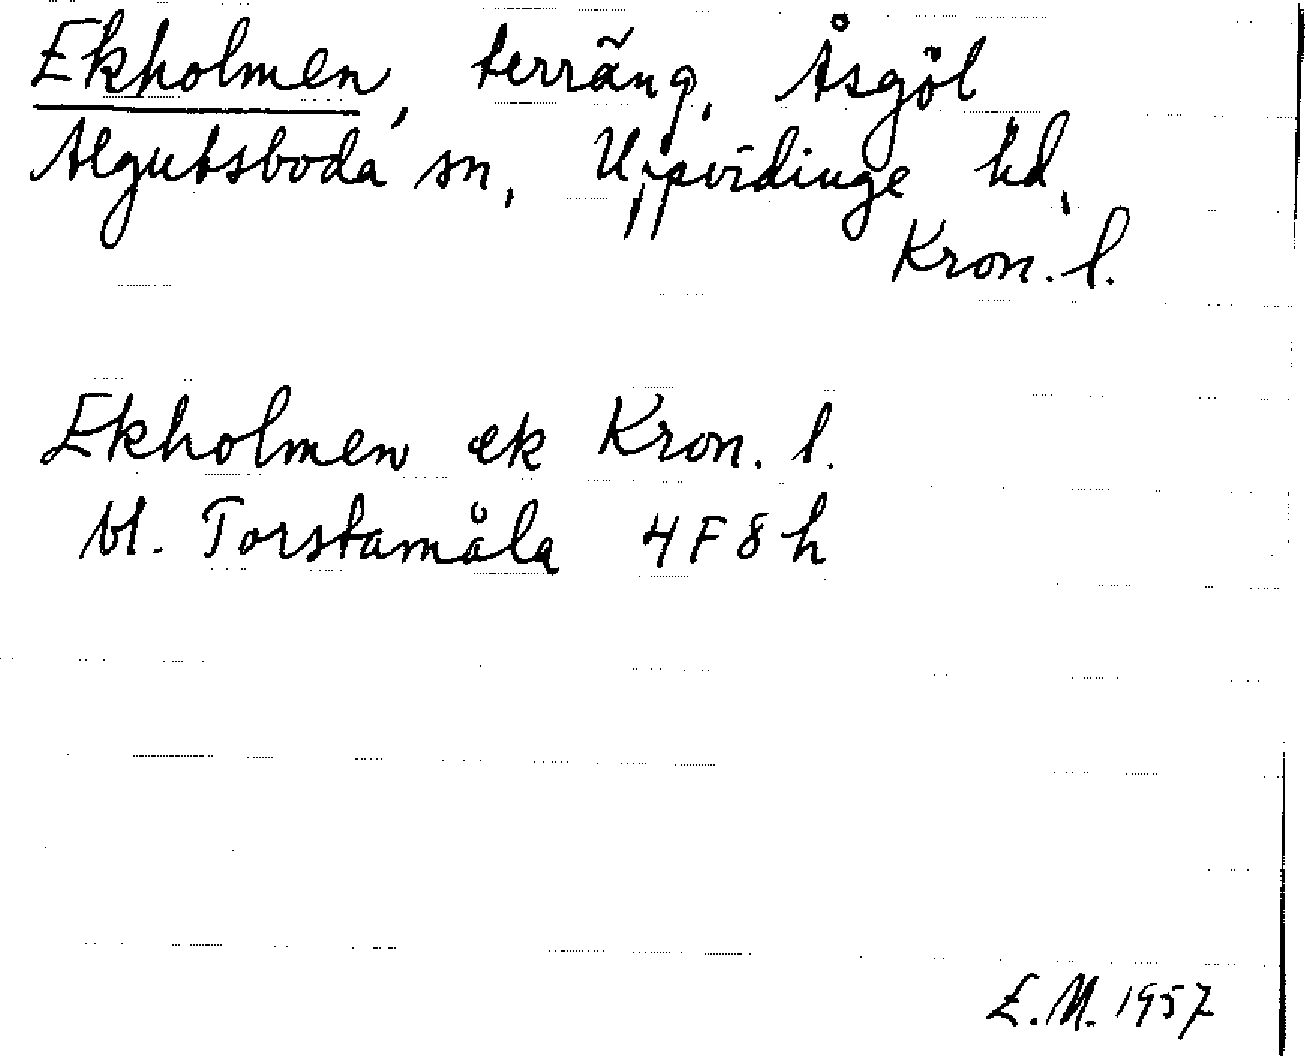 Ekholmen, terräng, Åsgöl
Algutsboda sn, Uppvidinge hd,
Kron. l.
Ekholmen ek Kron. l.
bl. Torstamåla 4F8h
E.M. 1957